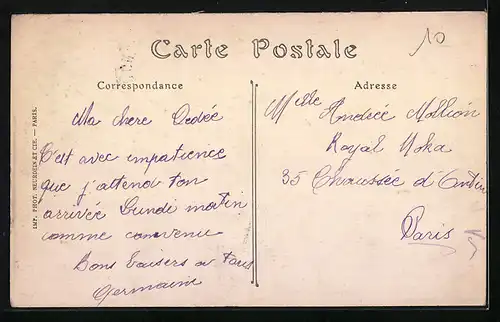 10
Carte Postale
Correspondance
Adresse
Ma chere Dedée
C'est avec impatience
que j'attend ton
arrivée Lundi matin
comme convenu
Bons baisers a tous
Germaine
Melle Andrée Mollion
Royal Moka
35 Chaussée d'Antin
Paris
IMP. PHOT. NEURDEIN ET CIE. — PARIS.